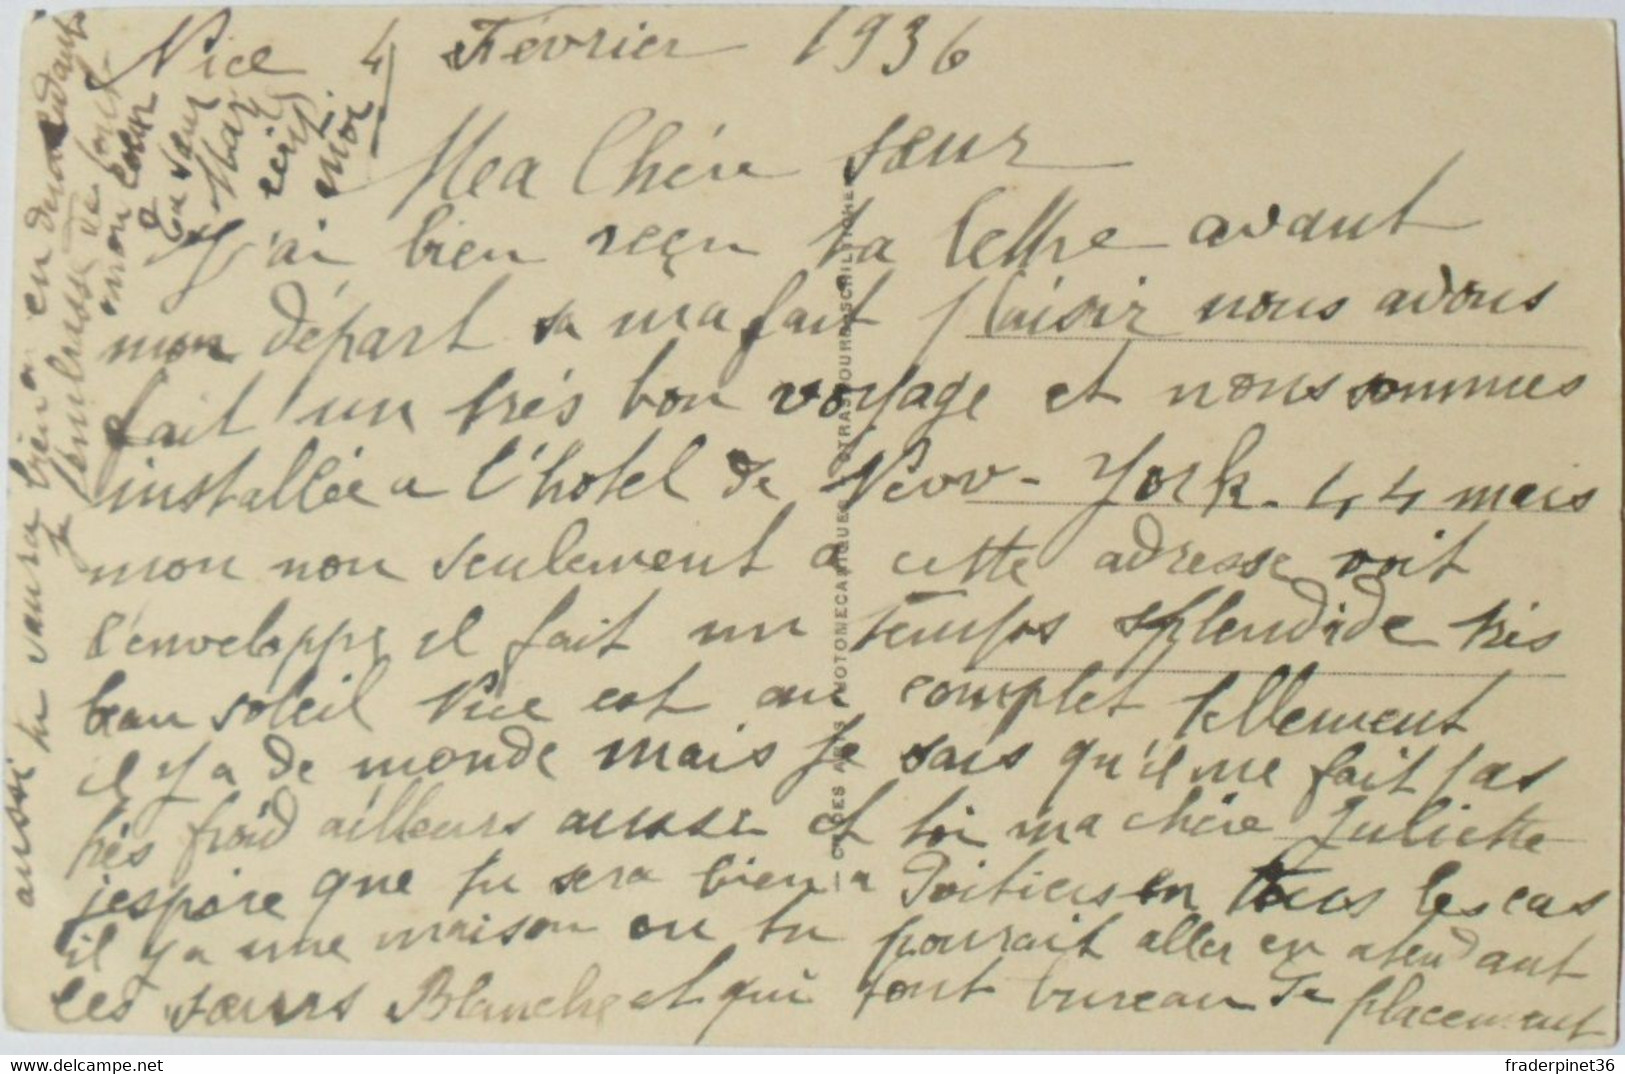 Nice 4 Février 1936
Mea Chére Sœur
J'ai bien reçu ta lettre avant
mon départ sa ma fait plaisir nous avons
fait un trés bon voyage et nous sommes
installée a l'hotel de New-York. 44 mais
mon non seulement a cette adresse voit
l'enveloppe il fait un temps splendide trés
beau soleil Nice est au complet tellement
il y a de monde mais je sais qu'il ne fait pas
trés froid ailleurs aussi et toi ma chére Juliette
j'espére que tu sera bien a Poitiers en tous les cas
il y a une maison ou tu pourait aller en atendant
les sœurs Blanche et qui font bureau de placement
aussi tu saura bien en demandant
Je t'embrasse de tout
mon cœur
Ta sœur
Mary
ecrit
moi
CIE DES ARTS PHOTOMECANIQUES STRASBOURG-SCHILTIGHEIM
fraderpinet36